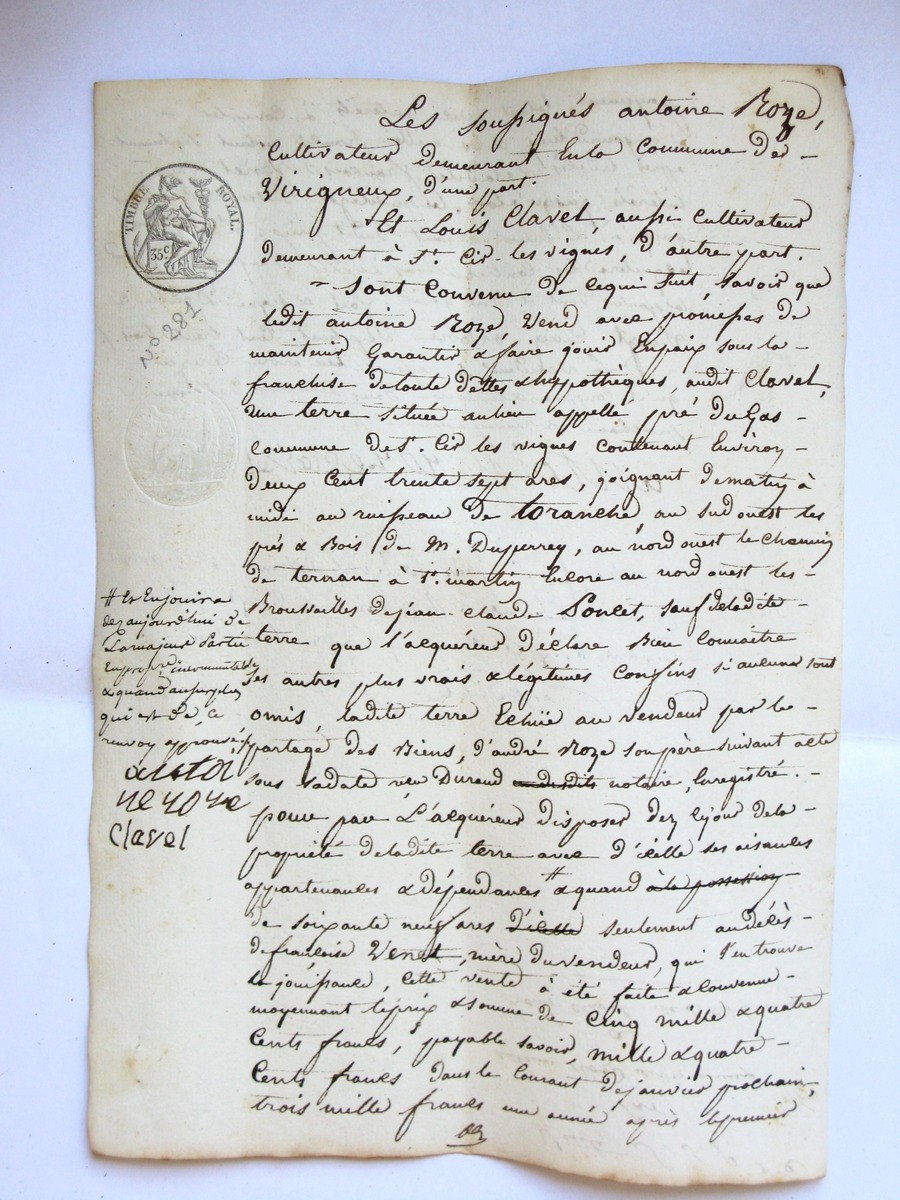 Les soussignés antoine Roze,
Cultivateur demeurant En la Commune des
Virigneux, d'une part.
Et Louis Clavel, aussi Cultivateur
demeurant à St. Cir-les vignes, d'autre part.
Sont Convenu de Cequi Suit, Savoir que
ledit antoine Roze, Vend avec promesses de
maintenir Garantir & faire jouir En paix sous la
franchise de toute dettes & hyppothèques, audit Clavel,
une terre située au lieu appellé pré du Gas
commune de St. Cir les vignes Contenant Environ
deux Cent trente sept ares, joignant de matin à
midi au ruisseau de toranche, au sud ouest les
prés & Bois de M. Duperrey, au nord ouest le Chemin
de à St. martin Encore au nord ouest les
Broussailles de jean-claude Poncet, sauf de la dite
terre que l'acquéreur déclare Bien Connaitre
Ses autres plus vrais & légitimes Confins si aucuns sont
omis, ladite terre Echüe au vendeur par le
partage des Biens, d'andré Roze son père suivant acte
sous sa date reçu Durand notaire, Enregistré.
pour par L'acquéreur disposer dez cejour de la
propriété de la dite terre avec d'icelle ses aisances
appartenances & dépendances # & quand à la possession
de soixante neuf ares d'icelle seulement au décès
de françoise Venet, mère du vendeur, qui s'en trouve
jouissance, Cette vente à été faite & Convenue
moyennant le prix & somme de Cinq mille & quatre
Cents francs, payable savoir, mille & quatre
Cents francs dans le Courant de janvier prochain,
trois mille francs une année après le premier
TIMBRE ROYAL.
35c
No 281
# Et En jouira
dez aujourd'hui de
La majeur Partie
En propre incommutable
& quand au surplus
qui est de, ce
renvoy approuvé
antoi
ne roze
Clavel